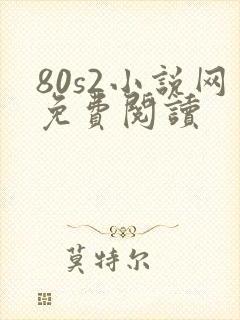 80s2小説网
免費閱讀
莫特尔